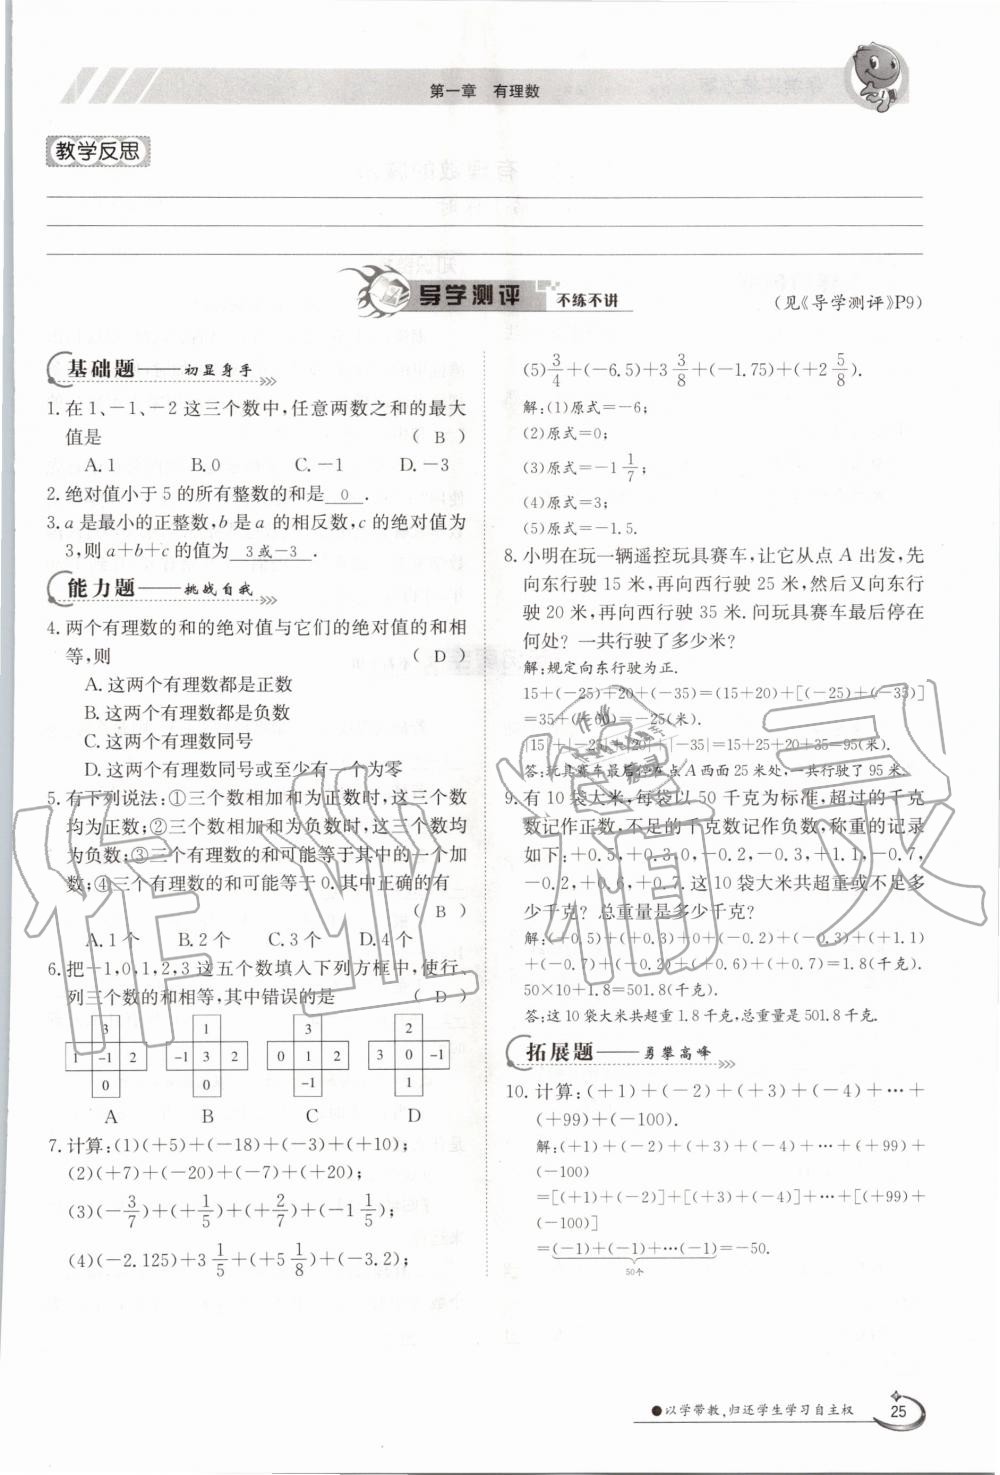 第一章　有理数
教学反思
导学测评 不练不讲
(见《导学测评》P9)
基础题——初显身手
1. 在 1、-1、-2 这三个数中,任意两数之和的最大
值是 ( B )
A. 1 B. 0 C. -1 D. -3
2. 绝对值小于 5 的所有整数的和是 0 .
3. a 是最小的正整数,b 是 a 的相反数,c 的绝对值为
3,则 a+b+c 的值为 3或-3 .
能力题——挑战自我
4. 两个有理数的和的绝对值与它们的绝对值的和相
等,则 ( D )
A. 这两个有理数都是正数
B. 这两个有理数都是负数
C. 这两个有理数同号
D. 这两个有理数同号或至少有一个为零
5. 有下列说法:①三个数相加和为正数时,这三个数
均为正数;②三个数相加和为负数时,这三个数均
为负数;③三个有理数的和可能等于其中的一个加
数;④三个有理数的和可能等于 0.其中正确的有
( B )
A. 1 个 B. 2 个 C. 3 个 D. 4 个
6. 把-1,0,1,2,3 这五个数填入下列方框中,使行、
列三个数的和相等,其中错误的是 ( D )
3 1 3 2
1 -1 2 -1 3 2 0 1 2 3 0 -1
0 0 -1 1
A B C D
7. 计算:(1)(+5)+(-18)+(-3)+(+10);
(2)(+7)+(-20)+(-7)+(+20);
(3)(-3/7)+(+1/5)+(+2/7)+(-1 1/5);
(4)(-2.125)+3 1/5+(+5 1/8)+(-3.2);
(5)3/4+(-6.5)+3 3/8+(-1.75)+(+2 5/8).
解:(1)原式=-6;
(2)原式=0;
(3)原式=-1 1/7;
(4)原式=3;
(5)原式=-1.5.
8. 小明在玩一辆遥控玩具赛车,让它从点 A 出发,先
向东行驶 15 米,再向西行驶 25 米,然后又向东行
驶 20 米,再向西行驶 35 米. 问玩具赛车最后停在
何处? 一共行驶了多少米?
解:规定向东行驶为正.
15+(-25)+20+(-35)=(15+20)+[(-25)+(-35)]
=35+(-60)=-25(米).
|15|+|-25|+|20|+|-35|=15+25+20+35=95(米).
答:玩具赛车最后停在点 A 西面 25 米处,一共行驶了 95 米.
9. 有 10 袋大米,每袋以 50 千克为标准,超过的千克
数记作正数,不足的千克数记作负数,称重的记录
如下:+0.5,+0.3,0,-0.2,-0.3,+1.1,-0.7,
-0.2,+0.6,+0.7. 这 10 袋大米共超重或不足多
少千克? 总重量是多少千克?
解:(+0.5)+(+0.3)+0+(-0.2)+(-0.3)+(+1.1)
+(-0.7)+(-0.2)+(+0.6)+(+0.7)=1.8(千克).
50×10+1.8=501.8(千克).
答:这 10 袋大米共超重 1.8 千克,总重量是 501.8 千克.
拓展题——勇攀高峰
10. 计算:(+1)+(-2)+(+3)+(-4)+…+
(+99)+(-100).
解:(+1)+(-2)+(+3)+(-4)+…+(+99)+
(-100)
=[(+1)+(-2)]+[(+3)+(-4)]+…+[(+99)+
(-100)]
=(-1)+(-1)+…(-1)=-50.
50个
●以学带教,归还学生学习自主权
25
作业精灵